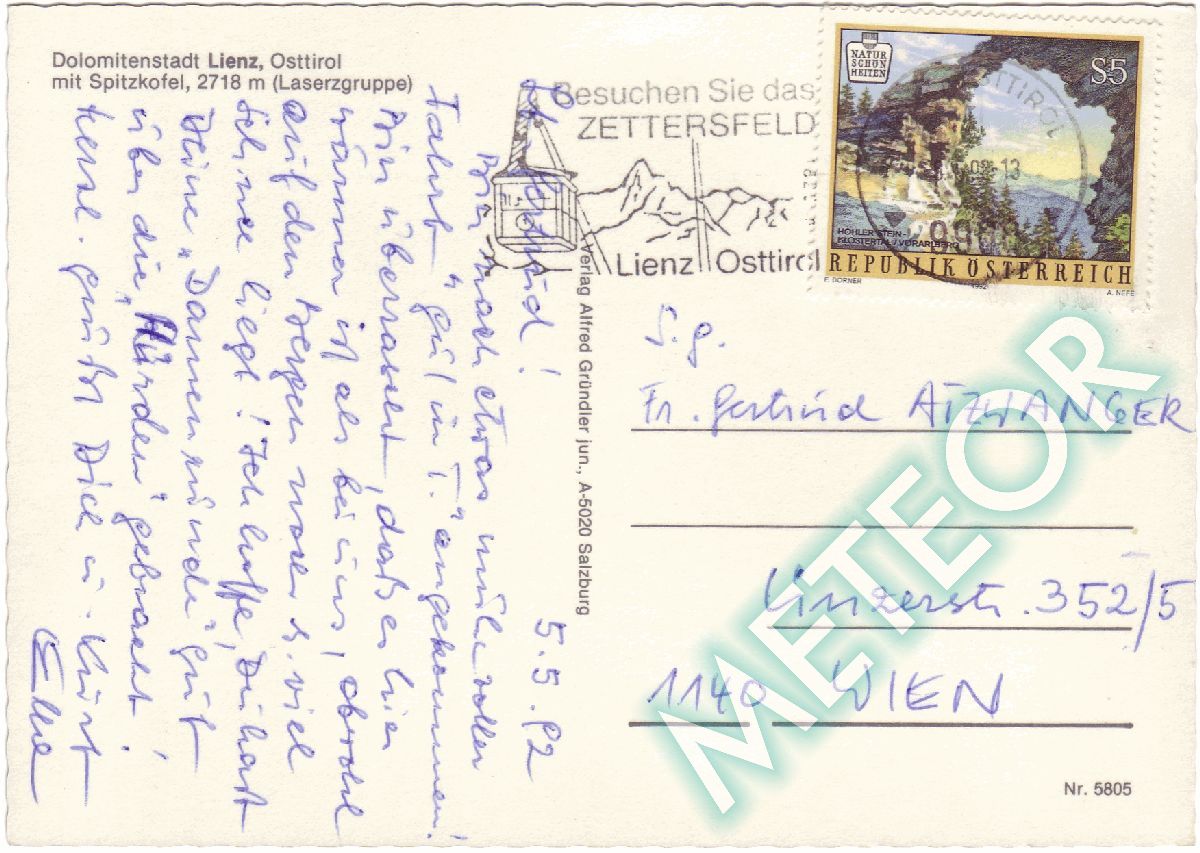 Dolomitenstadt Lienz, Osttirol
mit Spitzkofel, 2718 m (Laserzgruppe)
Besuchen Sie das
ZETTERSFELD
Lienz Osttirol
NATUR
SCHÖN
HEITEN
S5
OSTTIROL
HOHLER STEIN-
KLOSTERTAL / VORARLBERG
REPUBLIK ÖSTERREICH
E. DORNER 1992 A. NEFE
5.5.92
Bin nach etwas mühevoller
Fahrt "gut in T." angekommen!
Bin überrascht, daß es hier
wärmer ist als bei uns, obwohl
auf den Bergen noch s. viel
Schnee liegt! Ich hoffe, Du hast
Deine "Damenrunde" gut
über die "Hürden" gebracht!
Herzl. grüßt Dich u. Kurt
Elke
Verlag Alfred Gründler jun., A-5020 Salzburg
Fr. Gertrud ATZWANGER
Linzerstr. 352/5
1140 WIEN
Nr. 5805
METEOR